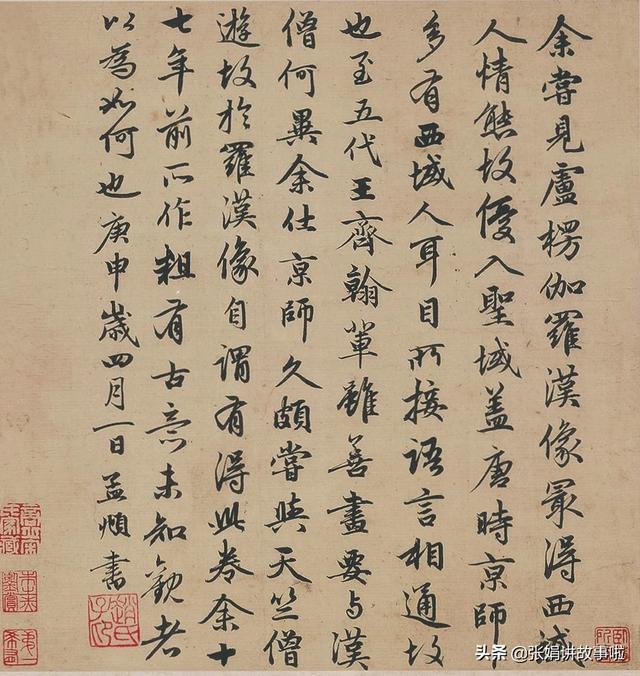 余嘗見盧楞伽羅漢像㝡得西域
人情態故優入聖域蓋唐時京師
多有西域人耳目所接語言相通故
也至五代王齊翰輩雖善畫要与漢
僧何異余仕京師久頗嘗與天竺僧
遊故於羅漢像自謂有得此卷余十
七年前所作粗有古意未知觀者
以為如何也庚申歲四月一日孟頫書
趙氏子昂
头条 @张娟讲故事啦